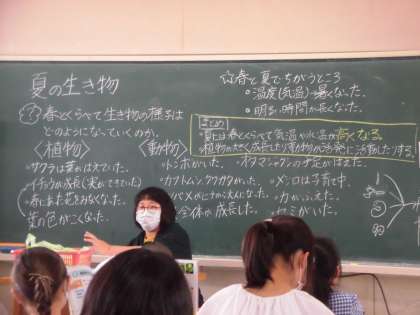 夏の生き物
春とくらべて生き物の様子は
どのようになっていくのか。
〈植物〉
サクラは葉がはえていた。
イチョウが成長(実ができていた)
春にあった花をみなくなった。
葉の色がこくなった。
〈動物〉
トンボがいた。
カブトムシ、クワガタがいた。
ツバメのヒナが大人になった。
全体が成長した。
オタマジャクシの手足がはえた。
メジロは子育て中。
カがふえた。
セミがいた。
☆春と夏でちがうところ
・温度(気温)が暑くなった。
・明るい時間が長くなった。
まとめ
夏は春とくらべて気温や水温が高くなる。
植物が大きく成長したり動物が活発に活動したりする。